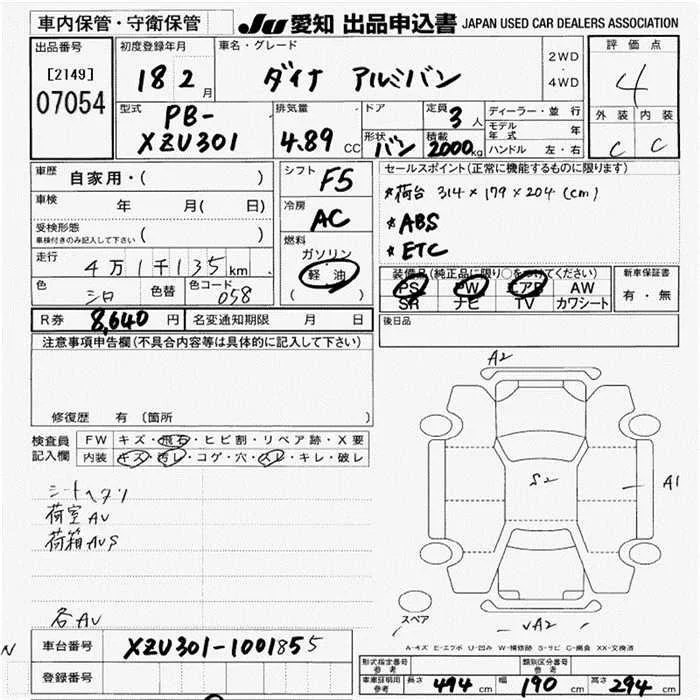 車内保管・守衛保管 JU 愛知 出品申込書 JAPAN USED CAR DEALERS ASSOCIATION
出品番号 初度登録年月 車名・グレード 評価点
[2149] 18 2月 ダイナ アルミバン 2WD・4WD 4
07054 外装 内装
型式 排気量 ドア 定員 3人 ディーラー・並行 C C
PB-XZU301 4.89CC 形状 バン 積載 2000kg モデル年式 年
ハンドル 左・右
車歴 自家用・( ) シフト F5 セールスポイント(正常に機能するものに限ります)
車検 年 月( 日) 冷房 AC *荷台 314×179×204(cm)
受検形態 車検付きのみ記入して下さい ( ) *ABS
燃料 ガソリン *ETC
走行 4万1千135km 軽油 装備品(純正品に限り○をつけてください) 新車保証書
色 シロ 色替 色コード 058 ( ) PS PW エアB AW 有・無
SR ナビ TV カワシート
R券 8,640円 名変通知期限 月 日 後日品
注意事項申告欄(不具合内容等は具体的に記入して下さい)
修復歴 有 〔箇所
検査員記入欄 FW キズ・飛石・ヒビ割・リペア跡・X要
内装 キズ・汚レ・コゲ・穴・スレ・キレ・破レ
シートヘタリ
荷室AU
荷箱AUS
各AU
A2
S2
A1
スペア
A2
A-キズ E-エクボ U-凹み W-補修跡 S-サビ C-腐食 XX-交換済
車台番号 XZU301-1001855
登録番号
形式指定番号 参考 類別区分番号 参考
車庫証明用 参考 長さ 494cm 幅 190cm 高さ 294cm